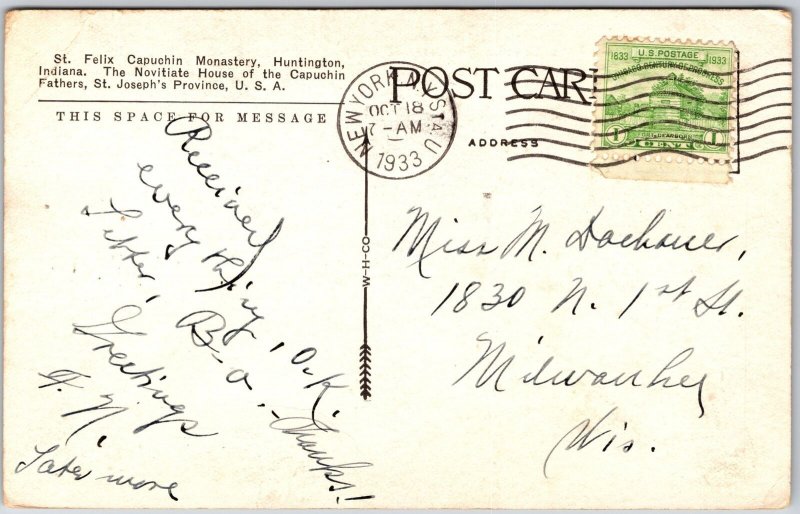 St. Felix Capuchin Monastery, Huntington,
Indiana. The Novitiate House of the Capuchin
Fathers, St. Joseph's Province, U. S. A.
THIS SPACE FOR MESSAGE
POST CAR
ADDRESS
NEW YORK, N.Y. STA. U
OCT 18
7-AM
1933
1833 U.S. POSTAGE 1933
CHICAGO CENTURY OF PROGRESS
FORT DEARBORN
1 CENT 1
W-H-CO
Received
everything, O.K.
Letter, B.o. - Thanks!
Greetings
Later more
Miss M. Dachauer,
1830 N. 1st St.
Milwaukey
Wis.